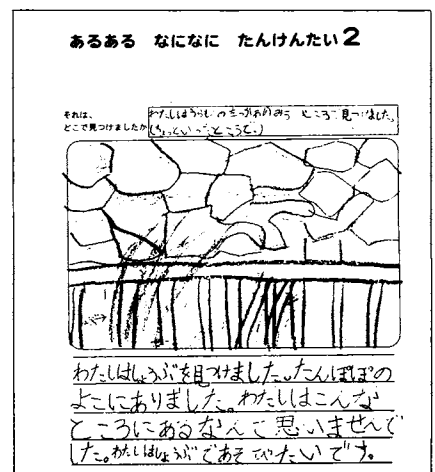 あるある なになに たんけんたい2
それは、
どこで見つけましたか
わたしは
ところで見つけました。
わたしはしょうぶを見つけました。たんぽぽの
よこにありました。わたしはこんな
ところにあるなんて思いませんで
した。わたしはしょうぶであそびたいです。